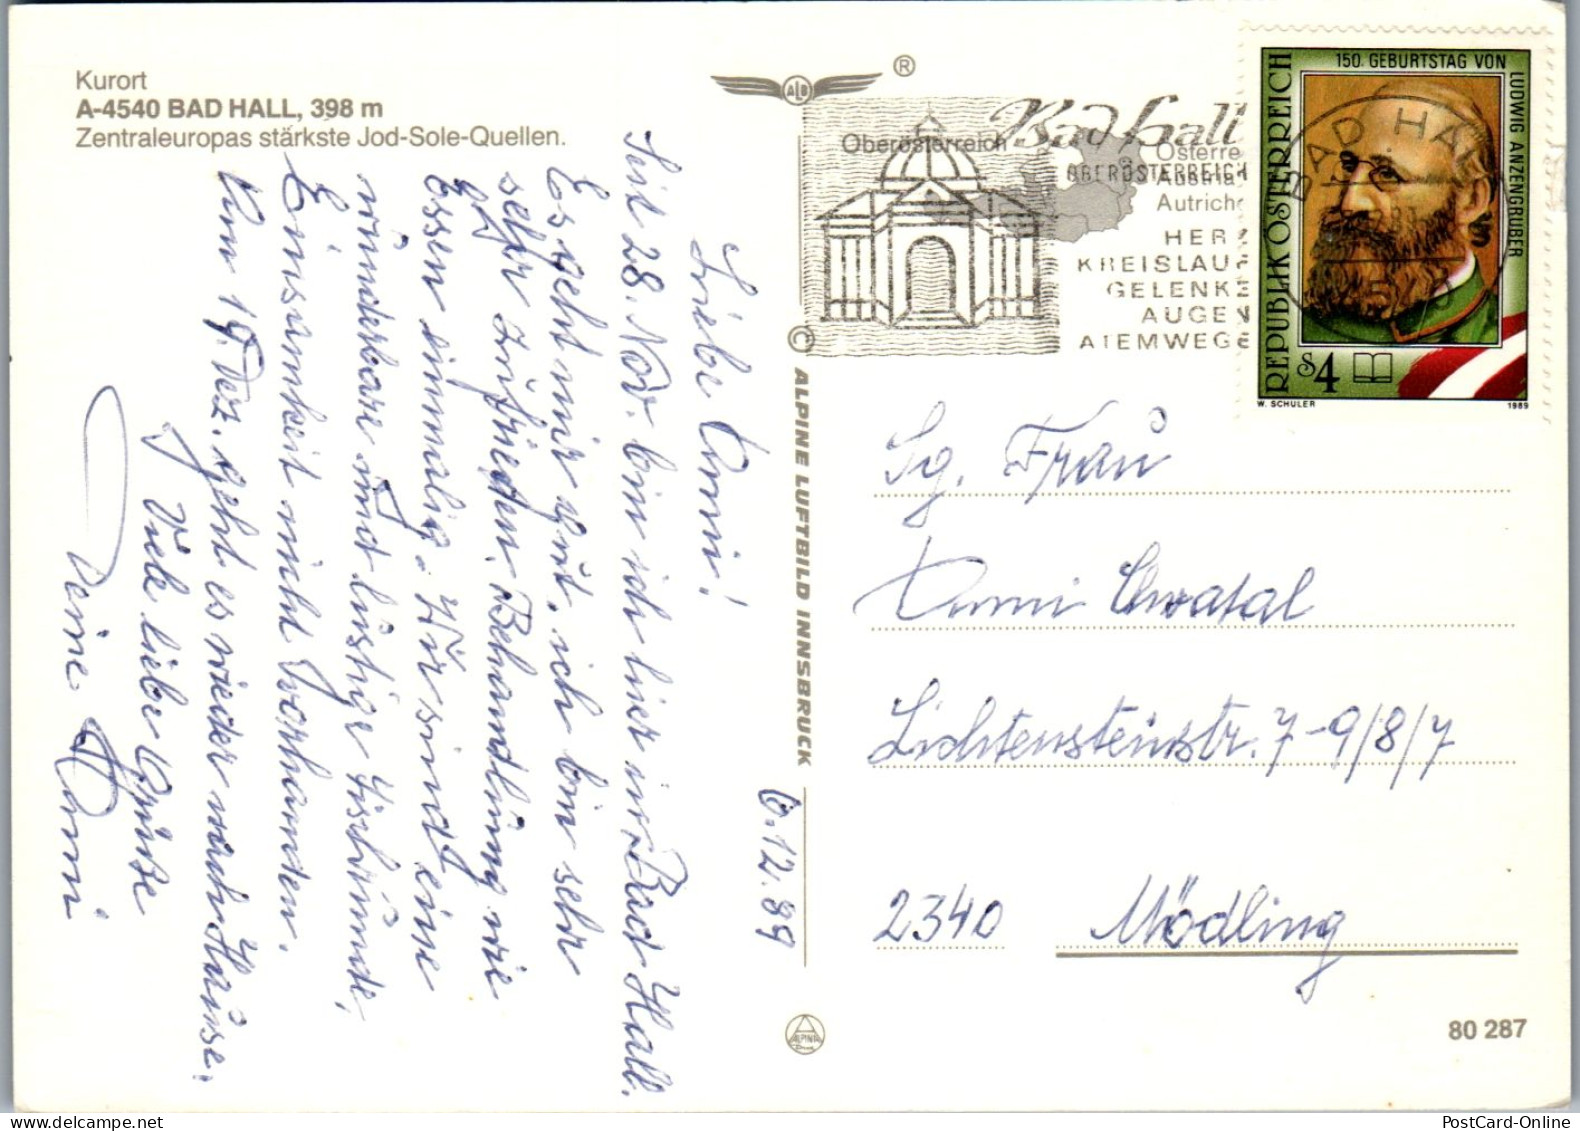 Kurort
A-4540 BAD HALL, 398 m
Zentraleuropas stärkste Jod-Sole-Quellen.
ALB
®
Oberösterreich
Bad Hall
Österre
Austria
Autriche
OBERÖSTERREICH
HERZ
KREISLAUF
GELENKE
AUGEN
ATEMWEGE
BAD HALL
150. GEBURTSTAG VON
LUDWIG ANZENGRUBER
REPUBLIK ÖSTERREICH
S4
W. SCHULER
1989
© ALPINE LUFTBILD INNSBRUCK
6.12.89
Liebe Anni!
Seit 28. Nov. bin ich hier in Bad Hall.
Es geht mir gut, ich bin sehr
sehr zufrieden. Behandlung wie
Essen einmalig. Wir sind eine
wunderbare und lustige Tischrunde,
Einsamkeit nicht vorhanden.
Am 19. Dez. geht es wieder nach Hause.
Viele liebe Grüße
Deine Anni
Sg. Frau
Anni Chvatal
Lichtensteinstr. 7-9/8/7
2340 Mödling
ALPINA
Druck
80 287
PostCard-Online